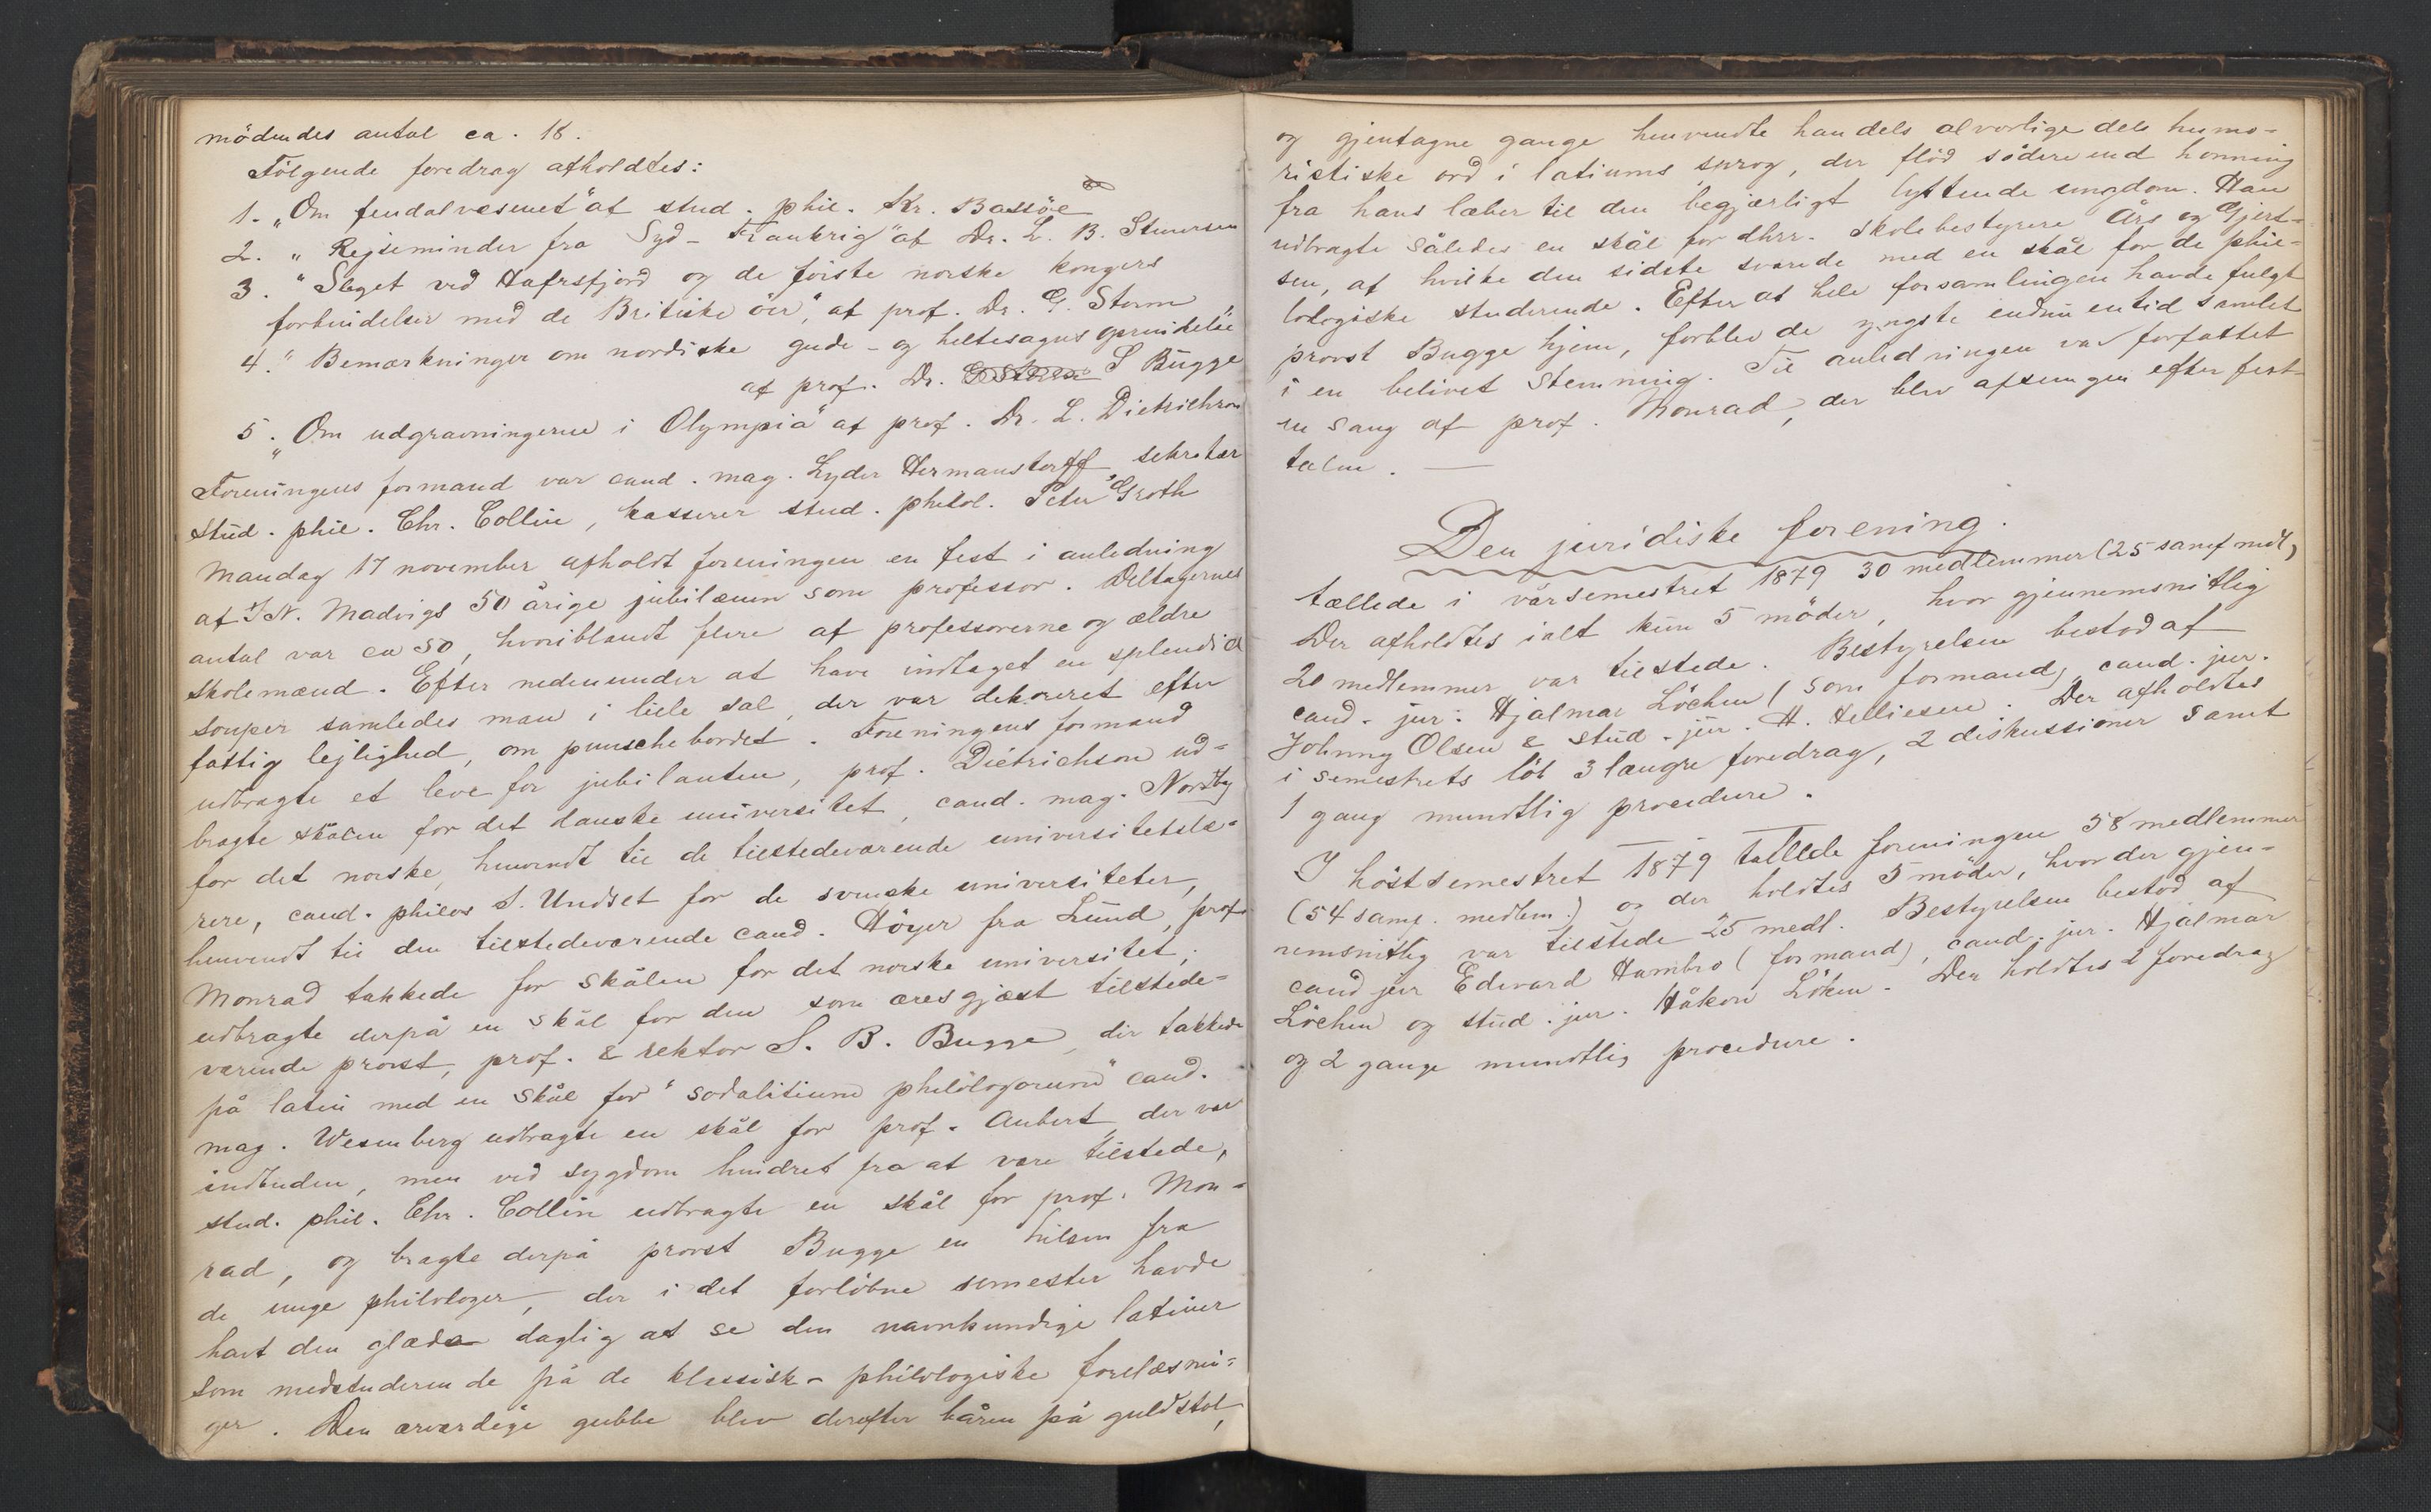 mödendes antal ca. 18.
Fölgende foredrag afholdtes:
1. „Om feudalvæsenet" af stud. phil. Kr. Bassöe
2. „Rejseminder fra Syd-Frankrig" af Dr. L. B. Stenersen
3. "Slaget ved Hafrsfjord og de förste norske kongers
forbindelser med de Britiske öer", af prof. Dr. G. Storm
4. "Bemærkninger om nordiske gude- og heltesagns oprindelse"
af prof. Dr. G Storm S Bugge
5. „Om udgravningerne i Olympia" af prof. Dr. L. Dietrichson
Foreningens formand var cand. mag. Lyder Hermanstorff sekretær
stud. phil. Chr. Collin, kasserer stud. philol. Peter Groth
Mandag 17 november afholdt foreningen en fest i anledning
af J.N. Madvigs 50 årige jubilæum som professor. Deltagernes
antal var ca 50, hvoriblandt flere af professorerne og ældre
skolemænd. Efter nedenunder at have indtaget en splendid
souper samledes man i lille sal, der var dekoreret efter
fattig lejlighed, om punschebordet. Foreningens formand
udbragte et leve for jubilanten, prof. Dietrichson ud-
bragte skålen for det danske universitet, cand. mag. Nordby
for det norske, henvendt til de tilstedeværende universitetslæ-
rere, cand. philos S. Undset for de svenske universiteter,
henvendt til den tilstedeværende cand. Höyer fra Lund, prof.
Monrad takkede for skålen for det norske universitet;
udbragte derpå en skål for den som æresgjæst tilstede-
værende provst, prof. & rektor S. B. Bugge, der takkede
på latin med en skål for "sodalitium philologorum" cand.
mag. Wesenberg udbragte en skål for prof. Aubert, der var
indbuden, men ved sygdom hindret fra at være tilstede,
stud. phil. Chr. Collin udbragte en skål for prof. Mon-
rad, og bragte derpå provst Bugge en hilsen fra
de unge philologer, der i det forlöbne semester havde
havt den glæde daglig at se den navnkundige latiner
som medstuderende på de klassisk-philologiske forelæsnin-
ger. Den ærværdige gubbe blev derefter båren på guldstol,
og gjentagne gange henvendte han dels alvorlige dels humo-
ristiske ord i latiums sprog, der flöd södere end honning
fra hans læber til den begjærligt lyttende ungdom. Han
udbragte således en skål for dhrr. skolebestyrere Års og Gjert-
sen, af hvilke den sidste svarede med en skål for de phi-
lologiske studerende. Efter at hele forsamlingen havde fulgt
provst Bugge hjem, forblev de yngste endnu en tid samlet
i en belivet stemning. Til anledningen var forfattet
en sang af prof. Monrad, der blev afsungen efter fest-
talen. —
Den juridiske forening.
tællede i vårsemestret 1879 30 medlemmer (25 samf medl,)
Der afholdtes ialt kun 5 möder, hvor gjennemsnitlig
20 medlemmer var tilstede. Bestyrelsen bestod af
cand. jur: Hjalmar Löchen (som formand), cand. jur.
Johnny Olsen & stud. jur. H. Helliesen. Der afholdtes
i semestrets löb 3 længre foredrag, 2 diskussioner samt
1 gang mundtlig procedure.
I höstsemestret 1879 tællede foreningen 58 medlemmer
(54 samf. medlem.) og der holdtes 5 möder, hvor der gjen-
nemsnitlig var tilstede 25 medl. Bestyrelsen bestod af
cand jur Edward Hambro (formand), cand. jur. Hjalmar
Löchen og stud. jur. Håkon Löken. Der holdtes 2 foredrag
og 2 gange mundtlig procedure.